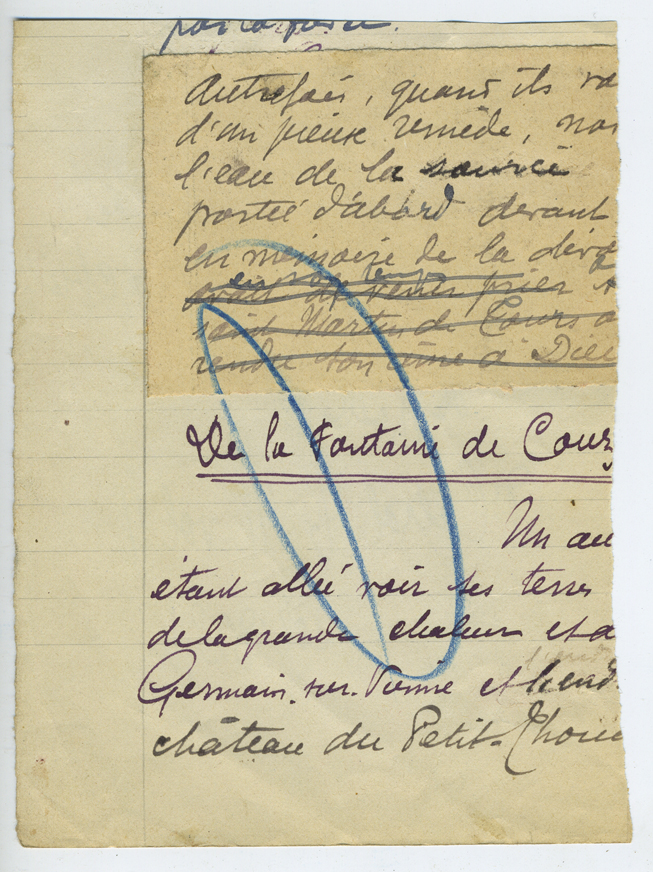 par la force.
Autrefois, quand ils
d'un pieux remède, nos
l'eau de la source
portée d'abord devant
en mémoire de la
avait de venir prier
saint Martin de Tours
rendu son âme à Dieu
De la Fontaine de
Un
étant allé voir ses terres
de la grande chaleur et a
Germain-sur-Vienne et
château du Petit-